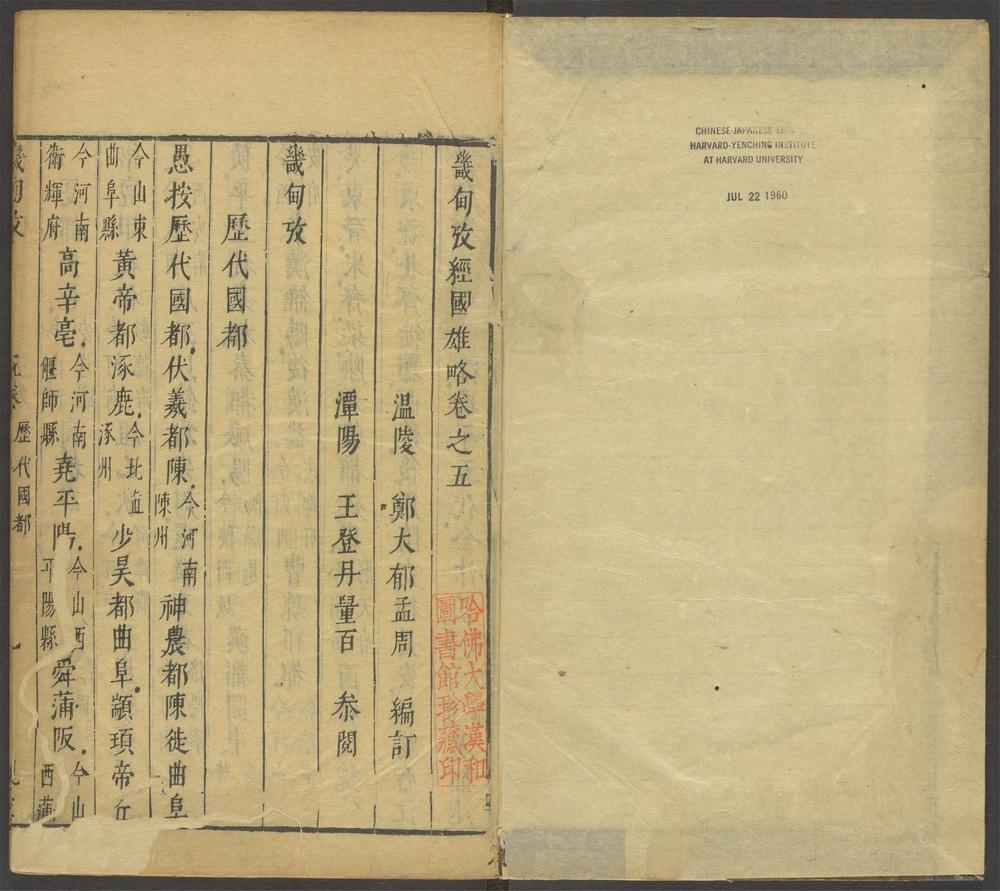 CHINESE-JAPANESE
HARVARD-YENCHING INSTITUTE
AT HARVARD UNIVERSITY
JUL 22 1960
畿甸攷經國雄略卷之五
温陵 鄭大郁孟周 編訂
潭陽 王登丹量百 叅閱
畿甸攷
歷代國都
愚按歷代國都伏羲都陳今河南陳州神農都陳徙曲阜
今山東曲阜縣黄帝都涿鹿今北直涿州少昊都曲阜顓頊帝丘
今河南衛輝府高辛亳今河南偃師縣堯平陽今山西平陽縣舜蒲阪今山西蒲
畿甸攷 歷代國都
哈佛大學漢和
圖書館珍藏印